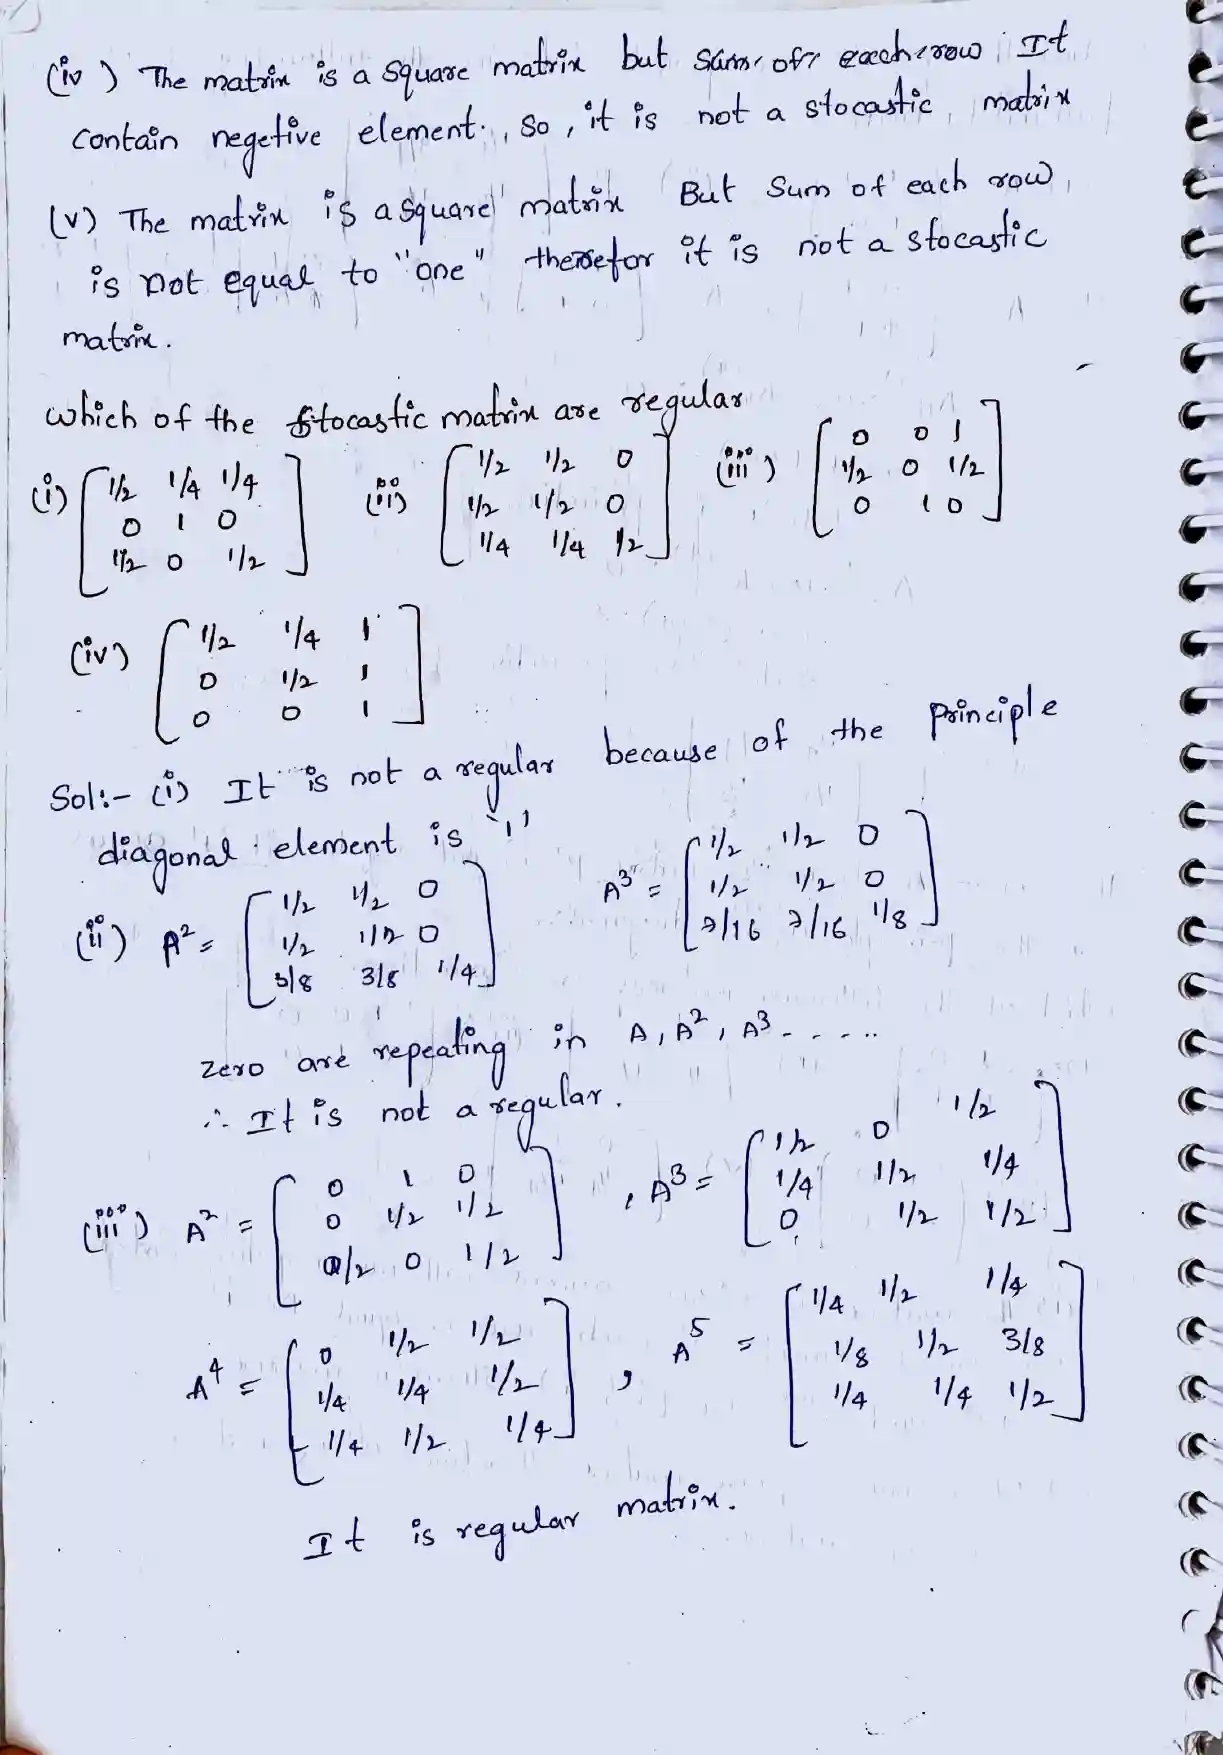 (iv) The matrix is a square matrix but sum of each row It
contain negetive element. , so , it is not a stocastic matrix
(v) The matrix is a square matrix But sum of each row
is not equal to "one" therefor it is not a stocastic
matrix.
which of the stocastic matrix are regular
(i) [1/2 1/4 1/4 (ii) [1/2 1/2 0 (iii) [0 0 1
0 1 0 1/2 1/2 0 1/2 0 1/2
1/2 0 1/2] 1/4 1/4 1/2] 0 1 0]
(iv) [1/2 1/4 1
0 1/2 1
0 0 1]
Sol:- (i) It is not a regular because of the principle
diagonal element is "1"
(ii) A² = [1/2 1/2 0 A³ = [1/2 1/2 0
1/2 1/2 0 1/2 1/2 0
3/8 3/8 1/4] 7/16 7/16 1/8]
zero are repeating in A, A², A³ - - - - ..
∴ It is not a regular.
(iii) A² = [0 1 0 , A³ = [1/2 0 1/2
0 1/2 1/2 1/4 1/2 1/4
/2 0 1/2] 0 1/2 1/2]
A⁴ = [0 1/2 1/2 , A⁵ = [1/4 1/2 1/4
1/4 1/4 1/2 1/8 1/2 3/8
1/4 1/2 1/4] 1/4 1/4 1/2]
It is regular matrix.